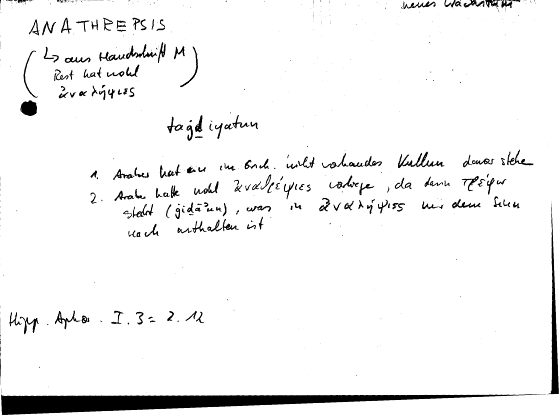 neues
ANATHREPSIS
(↳ aus Handschrift M
Rest hat wohl
ἀναλήψιες)
taġḏiyatun
1. Araber hat ein im Griech. nicht vorhandenes Kullun davor stehen
2. Araber hatte wohl ἀναθρέψιες vorliegen, da darin τρέφω
steckt (ġiḏāʾun), was in ἀναλήψιες nur dem Sinn
nach enthalten ist
Hipp. Apho. I. 3 = 2. 12